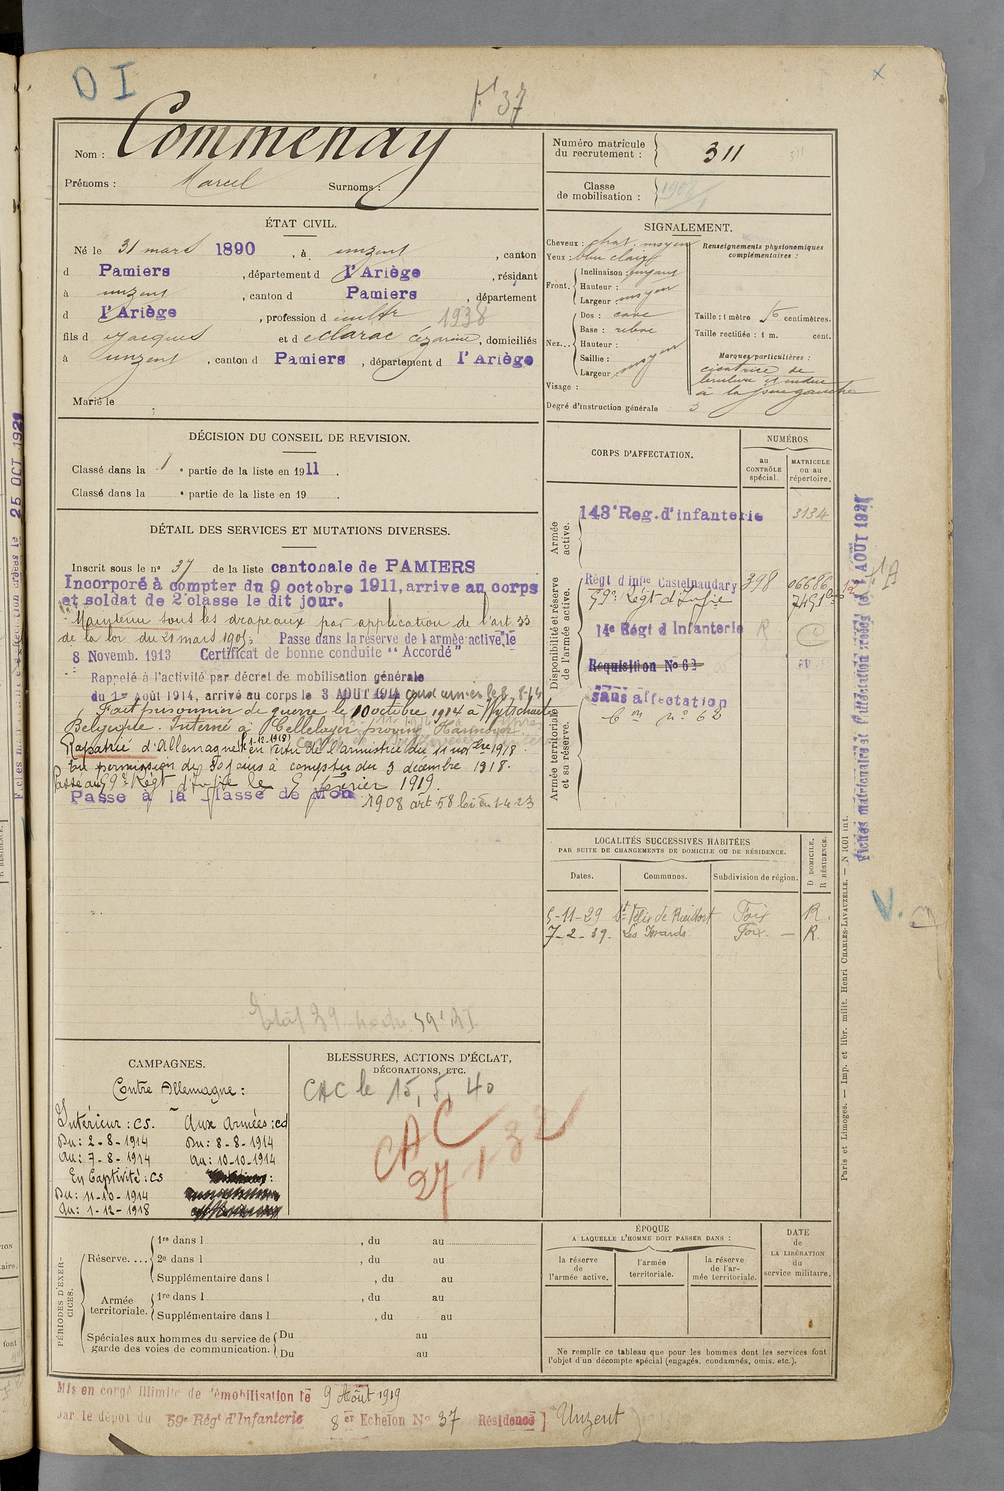 D I
F° 37
Nom : Commenay
Prénoms : Marcel Surnoms :
Numéro matricule du recrutement : 311
Classe de mobilisation :
ÉTAT CIVIL.
Né le 31 mars 1890, à unzent, canton
d Pamiers, département d l'Ariège, résidant
à unzent, canton d Pamiers, département
d l'Ariège, profession d cultr 1938
fils d Jacques et d Clarac Cézarine, domiciliés
à unzent, canton d Pamiers, département d l'Ariège
Marié le
SIGNALEMENT.
Cheveux : chat. moyen
Yeux : bleu clair
Front. Inclinaison : moyens
Hauteur :
Largeur : moyen
Nez... Dos : cave
Base : relevé
Hauteur :
Saillie :
Largeur : moyen
Visage :
Degré d'instruction générale 3
Renseignements physionomiques complémentaires :
Taille : 1 mètre centimètres.
Taille rectifiée : 1 m. cent.
Marques particulières :
cicatrice de
à la joue gauche
DÉCISION DU CONSEIL DE REVISION.
Classé dans la 1e partie de la liste en 1911.
Classé dans la e partie de la liste en 19 .
DÉTAIL DES SERVICES ET MUTATIONS DIVERSES.
Inscrit sous le n° 37 de la liste cantonale de PAMIERS
Incorporé à compter du 9 octobre 1911, arrive au corps
et soldat de 2e classe le dit jour.
Maintenu sous les drapeaux par application de l'art 33
de la loi du 21 mars 1905; Passe dans la réserve de l'armée active, le
8 Novemb. 1913 Certificat de bonne conduite "Accordé"
Rappelé à l'activité par décret de mobilisation générale
du 1er Août 1914, arrivé au corps le 3 AOUT 1914
Fait prisonnier de guerre le 10 octobre 1914 à Wytschaete
Belgique. Interné à Cellelager province Hannover
Rapatrié d'Allemagne (1-12-1918) en vertu de l'armistice du 11 novbre 1918
En permission de 30 jours à compter du 3 décembre 1918.
Passé au 59e Régt d'Infie le 5 février 1919.
Passe à la classe de Mon 1908 art 58 loi du 1-4-23
CORPS D'AFFECTATION.
NUMÉROS
au CONTRÔLE spécial.
MATRICULE ou au répertoire.
Armée active.
143e Reg. d'infanterie 3134
Disponibilité et réserve de l'armée active.
Régt d'infie Castelnaudary 398 06686
59e Régt d'Infie 7491
14e Régt d'Infanterie R
Réquisition No 62
Armée territoriale et sa réserve.
sans affectation
Con n° 62
LOCALITÉS SUCCESSIVES HABITÉES
PAR SUITE DE CHANGEMENTS DE DOMICILE OU DE RÉSIDENCE.
Dates. Communes. Subdivision de région. D DOMICILE. R RÉSIDENCE.
5-11-29 St Félix de Rieutord Foix R.
7-2-39. Les Issards Foix. — R.
CAMPAGNES.
Contre Allemagne :
Intérieur : CS. Aux Armées : cd
Du : 2-8-1914 Du : 8-8-1914
Au : 7-8-1914 Au : 10-10-1914
En Captivité : CS
Du : 11-10-1914
Au : 1-12-1918
BLESSURES, ACTIONS D'ÉCLAT, DÉCORATIONS, ETC.
CAC le 15, 5, 40
CAC
27 1 32
PÉRIODES D'EXERCICES.
Réserve.... 1re dans l , du au
2e dans l , du au
Supplémentaire dans l , du au
Armée territoriale. 1re dans l , du au
Supplémentaire dans l , du au
Spéciales aux hommes du service de garde des voies de communication. Du au
Du au
ÉPOQUE
A LAQUELLE L'HOMME DOIT PASSER DANS :
la réserve de l'armée active.
l'armée territoriale.
la réserve de l'armée territoriale.
DATE de LA LIBÉRATION du service militaire.
Ne remplir ce tableau que pour les hommes dont les services font
l'objet d'un décompte spécial (engagés, condamnés, omis, etc.).
Mis en congé illimité de démobilisation le 9 Août 1919
par le dépôt du 59e Régt d'Infanterie 8er Echelon No 37 Résidence Unzent
Paris et Limoges. — Imp. et libr. milit. Henri CHARLES-LAVAUZELLE. — N 1601 int.
25 OCT 1921